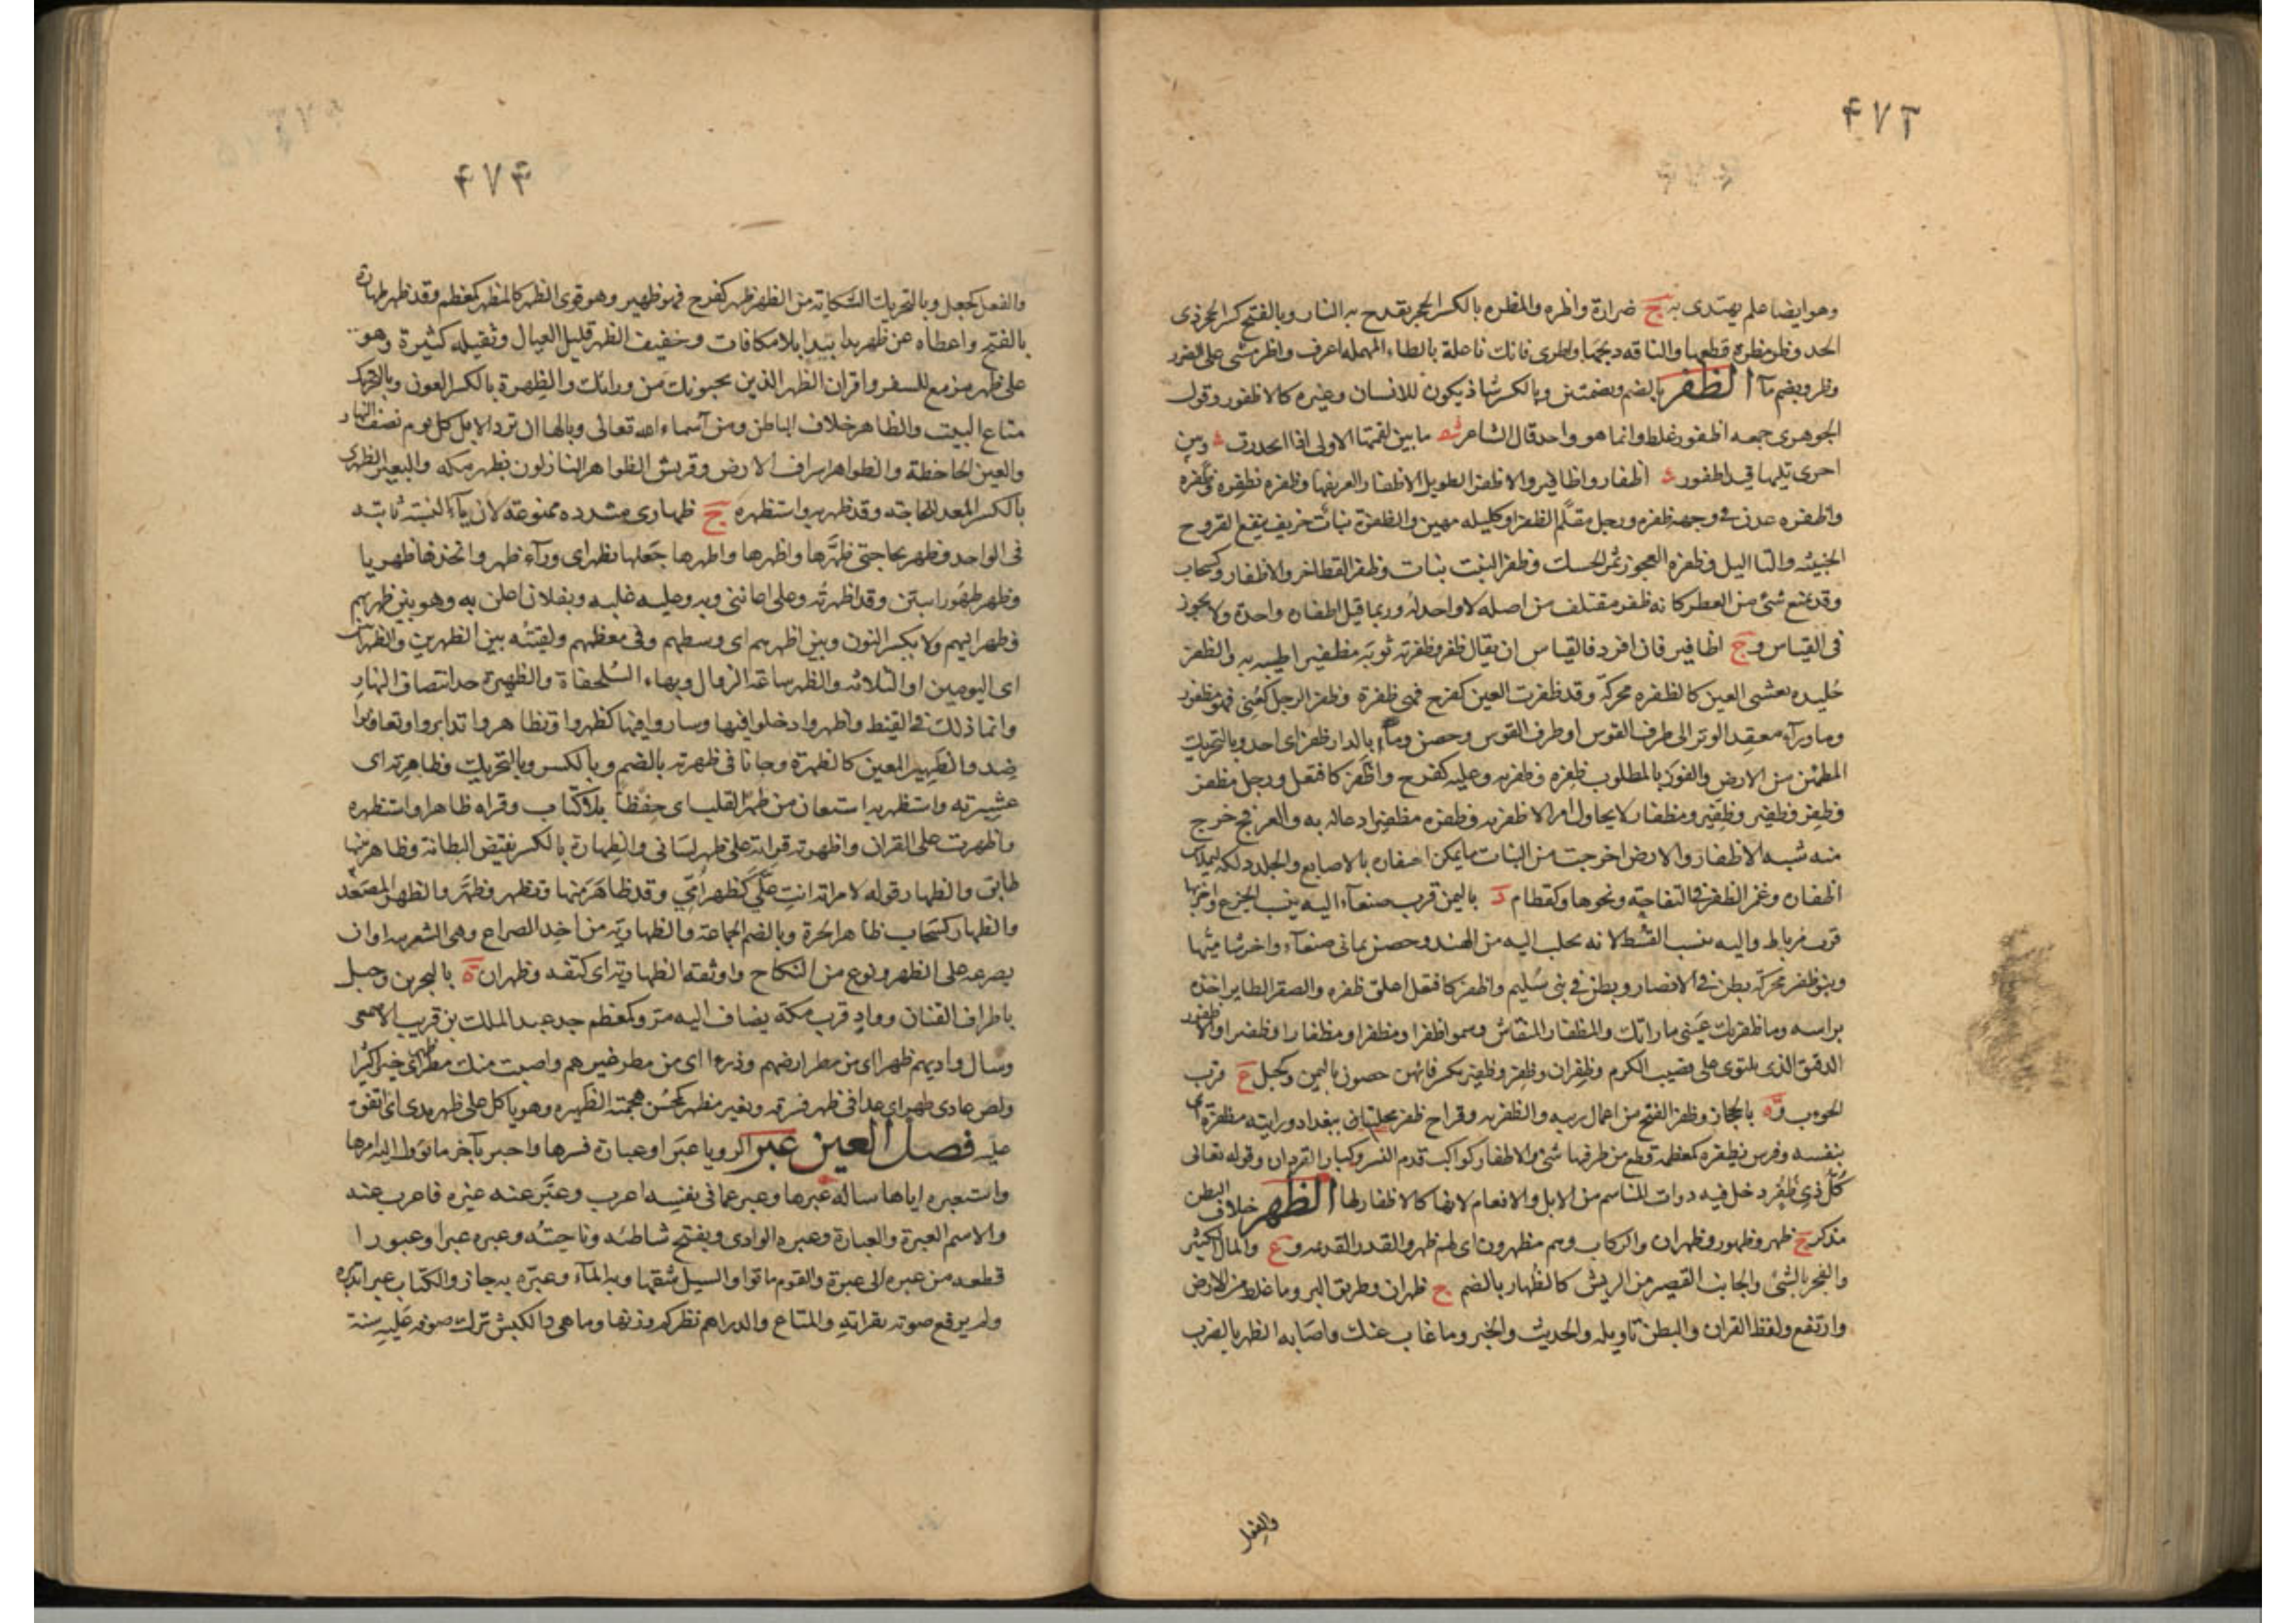 ۴۷۳
وهو ايضا علم يهتدى به ج ضرارة واظره والمظره بالكسر الحجر يقدح به النار وبالفتح كسر الحجر ذى
الحد وظر مظرة قطعها والناقه ذبحها واظرى فانك ناعلة بالطاء المهمله اعرف واظر مشى على الضرر
وظر وبضم مآ الظفر بالضم وبضمتين وبالكسر شاذ يكون للانسان وغيره كالاظفور وقول
الجوهرى جمعه اظفور غلط وانما هو واحد قال الشاعر ما بين لقمتها الاولى اذا انحدرت وبين
اخرى تليها قيد اظفور اظفار واظافير والاظفر الطويل الاظفار العريضها وظفره يظفره وظفره
واظفره غرز فى وجهه ظفره ورجل مقلم الظفر او كليله مهين والظفرة نبات حريف ينفع القروح
الخبيثه والثااليل وظفرة العجوز ثمر الحسك وظفر النبت نبات وظفر القط اخر والاظفار وكسحاب
وقد يمنع شئ من العطر كانه ظفر مقتلف من اصله لا واحد له وربما قيل اظفان واحدة ولا يجوز
فى القياس وج اظافير فان افرد فالقياس ان يقال ظفر وظفر به ثوبه مظفير اطيبه به والظفر
جليده تعشى العين كالظفره محركة وقد ظفرت العين كفرح فهى ظفرة وظفر الرجل كعنى فهو مظفور
وما ورآء معقد الوتر الى طرف القوس او طرف القوس وحصن وماء بالدار ظفر اى احد وبالتحريك
المطمئن من الارض والفوز بالمطلوب ظفره وظفر به وعليه كفرح واظفر كافتعل ورجل مظفر
وظفر وظفير وظفير ومظفار لا يحاول امرا الا ظفر به وظفره مظفيرا دعا له به والعرفج خرج
منه شبه الاظفار والارض اخرجت من النبات ما يمكن احتفان بالاصابع والجلد دلكه ليملاس
اظفان وغرز الظفر فى التفاحة ونحوها وكقطام د باليمن قرب صنعآء اليه ينسب الجزع واخر بها
قرب مرباط واليه ينسب القسط لانه يجلب اليه من الهند وحصن يمانى صنعآء واخر شاميها
وبنو ظفر محركة بطن فى الانصار وبطن فى بنى سليم واظفر كافتعل اعلق ظفره والصقر الطاير اخذه
براسه وما ظفرتك عينى ما راتك والمظفار المنقاش وسموا ظفرا ومظفرا ومظفارا وظفيرا والاظفور
الدقيق الذى يلتوى على قضيب الكرم وظفران وظفر وظفير بكسر فائهن حصون باليمن وكجبل ع قرب
الحوءب وة بالحجاز وظفر الفتح من اعمال زبيد والظفريه وقراح ظفر محلتان ببغداد ورايته مظفرة اى
بنفسه وفرس يظفره كمعظمه قطع من طرفها شئ والاظفار كواكب قدم النسر وكبار القردان وقوله تعالى
كل ذى ظفر دخل فيه ذوات المناسم من الابل والانعام لانها كالاظفار لها الظهر خلاف البطن
مذكر ج ظهر وظهور وظهران والركاب وهم مظهرون اى لهم ظهر والقدر القديمه وع والمال الكثير
والفخر بالشئ والجانب القصير من الريش كالظهار بالضم ج ظهران وطريق البر وما غلظ من الارض
وارتفع ولفظ القران والبطن تاويله والحديث والخبر وما غاب عنك واصابة الظهر بالضرب
والفعل
۴۷۴
والفعل كجعل وبالتحريك الشكاية من الظهر ظهر كفرح فهو ظهير وهو قوى الظهر كالمظهر كمعظم وقد ظهر ظهارة
بالفتح واعطاه عن ظهر يد ابتدا بلا مكافات وخفيف الظهر قليل العيال وثقيله كثيرة وهو
على ظهر مزمع للسفر واقران الظهر الذين يحبونك من ورائك والظهرة بالكسر العون وبالتحريك
متاع البيت والظاهر خلاف الباطن ومن آسماء الله تعالى وبالها ان ترد الابل كل يوم نصف النهار
والعين الجاحظة والظواهر اشراف الارض وقريش الظواهر النازلون بظهر مكه والبعير الظهرى
بالكسر المعد للحاجة وقد ظهر به واستظهره ج ظهارى مشدده ممنوعة لان يآء النسبة ثابته
فى الواحد وظهر بحاجتى ظهرها واظهرها واظهرها جعلها بظهر اى ورآء ظهر واتخذها ظهريا
وظهر ظهورا تبين وقد اظهرته وعلى اعاننى وبه وعليه غلبه وبفلان اعلن به وهو بين ظهريهم
وظهرانيهم ولا بكسر النون وبين اظهرهم اى وسطهم وفى معظمهم ولقيته بين الظهرين والظهرانين
اى اليومين او الثلاثه والظهر ساعة الزوال وبهاء السلحفاة والظهيرة حد انتصاف النهار
وانما ذلك فى القيظ واظهروا دخلوا فيها وساروا فيها كظهروا وتظاهروا تدابروا وتعاونوا
ضد والظهير المعين كالظهرة وجانا فى ظهرته بالضم وبالكسر وبالتحريك وظاهرته اى
عشيرته واستظهر به استعان من ظهر القلب اى حفظا بلا كتاب وقراه ظاهرا واستظهره
واظهرت على القران واظهرته قراته على ظهر لسانى والظهارة بالكسر نقيض البطانة وظاهر بينهما
طابق والظهار قوله لامراته انت على كظهر امى وقد ظاهر منها وتظهر وظهر والظهر المصعد
والظهار كسحاب ظاهر الحرة وبالضم الجماعة والظهارية من اخذ الصراع وهى الشغزبيه او ان
يصرعه على الظهر ونوع من النكاح واوثقه الظهارية اى كتفه وظهران ة بالبحرين وجبل
باطراف القنان وواد قرب مكة يضاف اليه مر وكمعظم جد عبد الملك بن قريب الاصمعى
وسال واديهم ظهرا اى من مطر ارضهم وذرءا اى من مطر غيرهم واصبت منك مطر ظهر خيرا كثيرا
ولص عادى ظهر اى عدا فى ظهر فسرقه وبعير مظهر كمحسن هجمته الظهيره وهو ياكل على ظهر يدى اى اتفق
عليه فصل العين عبر الرويا عبرا وعبارة فسرها واخبر بآخر ما يؤول اليه امرها
واستعبره اياها ساله عبرها وعبر عما فى نفسه اعرب وعبر عنه غيره فاعرب عنه
والاسم العبرة والعبارة وعبره الوادى ويفتح شاطئه وناحيته وعبره عبرا وعبورا
قطعه من عبره الى عبرة والقوم ماتوا والسبيل شقها وبه المآء وعبره به جاز والكتاب عبرا تدبره
ولم يرفع صوته بقرائته والمتاع والدراهم نظر كم وزنها وما هى والكبش ترك صوفه عليه سنة